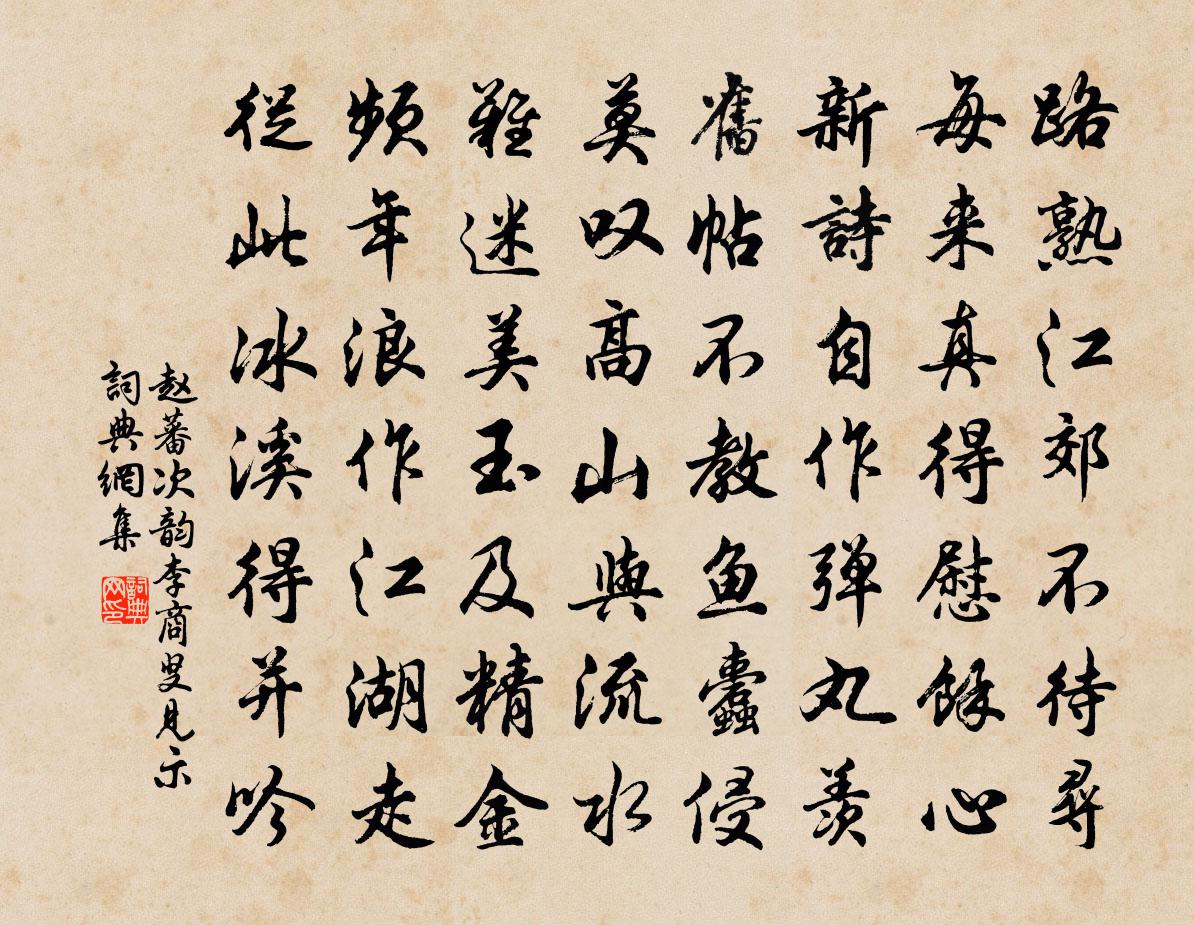 路熟江郊不待尋
每来真得慰餘心
新詩自作弹丸羨
舊帖不教鱼蠹侵
莫叹高山與流水
難迷美玉及精金
频年浪作江湖走
從此冰溪得并吟
赵蕃次韵李商叟見示
詞典網集
詞典
网印